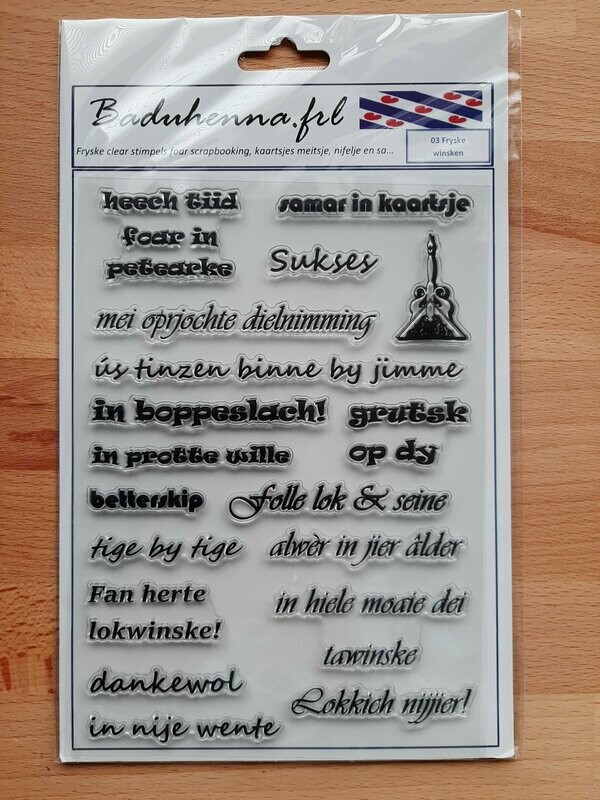 Baduhenna.frl
Fryske clear stimpels foar scrapbooking, kaartsjes meitsje, nifelje en sa...
03 Fryske
winsken
heech tiid
samar in kaartsje
foar in
petearke
Sukses
mei oprjochte dielnimming
ús tinzen binne by jimme
in boppeslach!
grutsk
in protte wille
op dy
betterskip
Folle lok & seine
tige by tige
alwèr in jier âlder
Fan herte
lokwinske!
in hiele moaie dei
tawinske
dankewol
Lokkich nijjier!
in nije wente